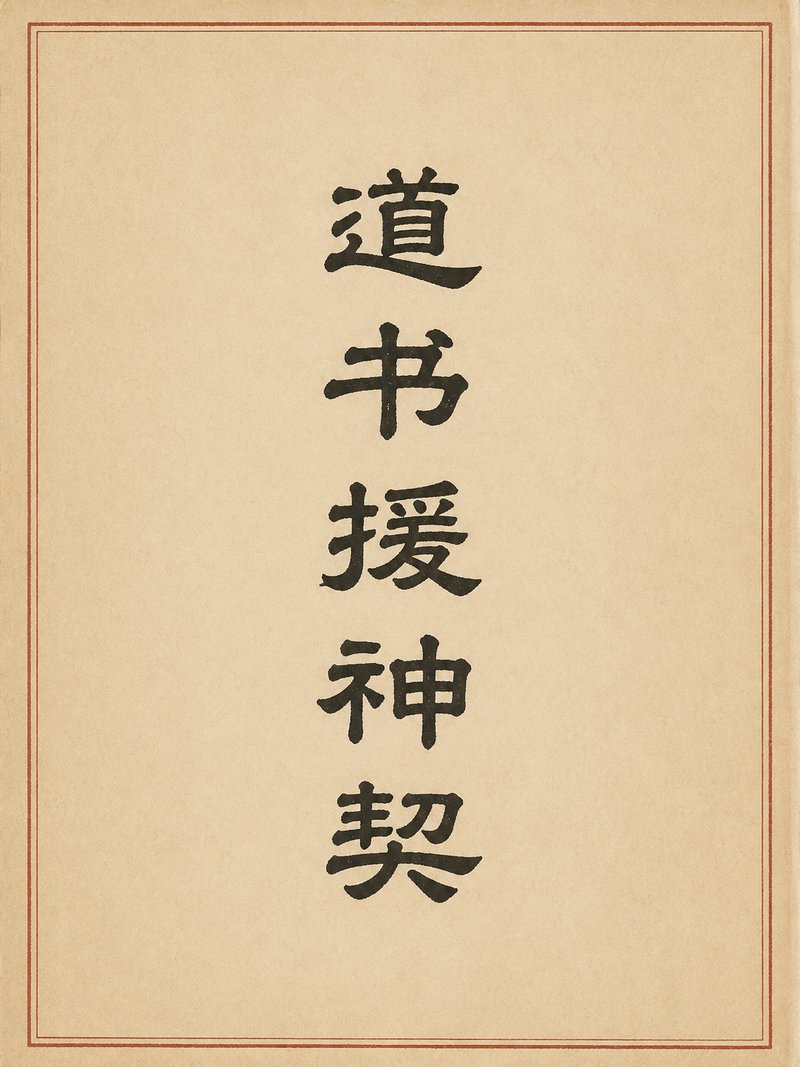 道书援神契